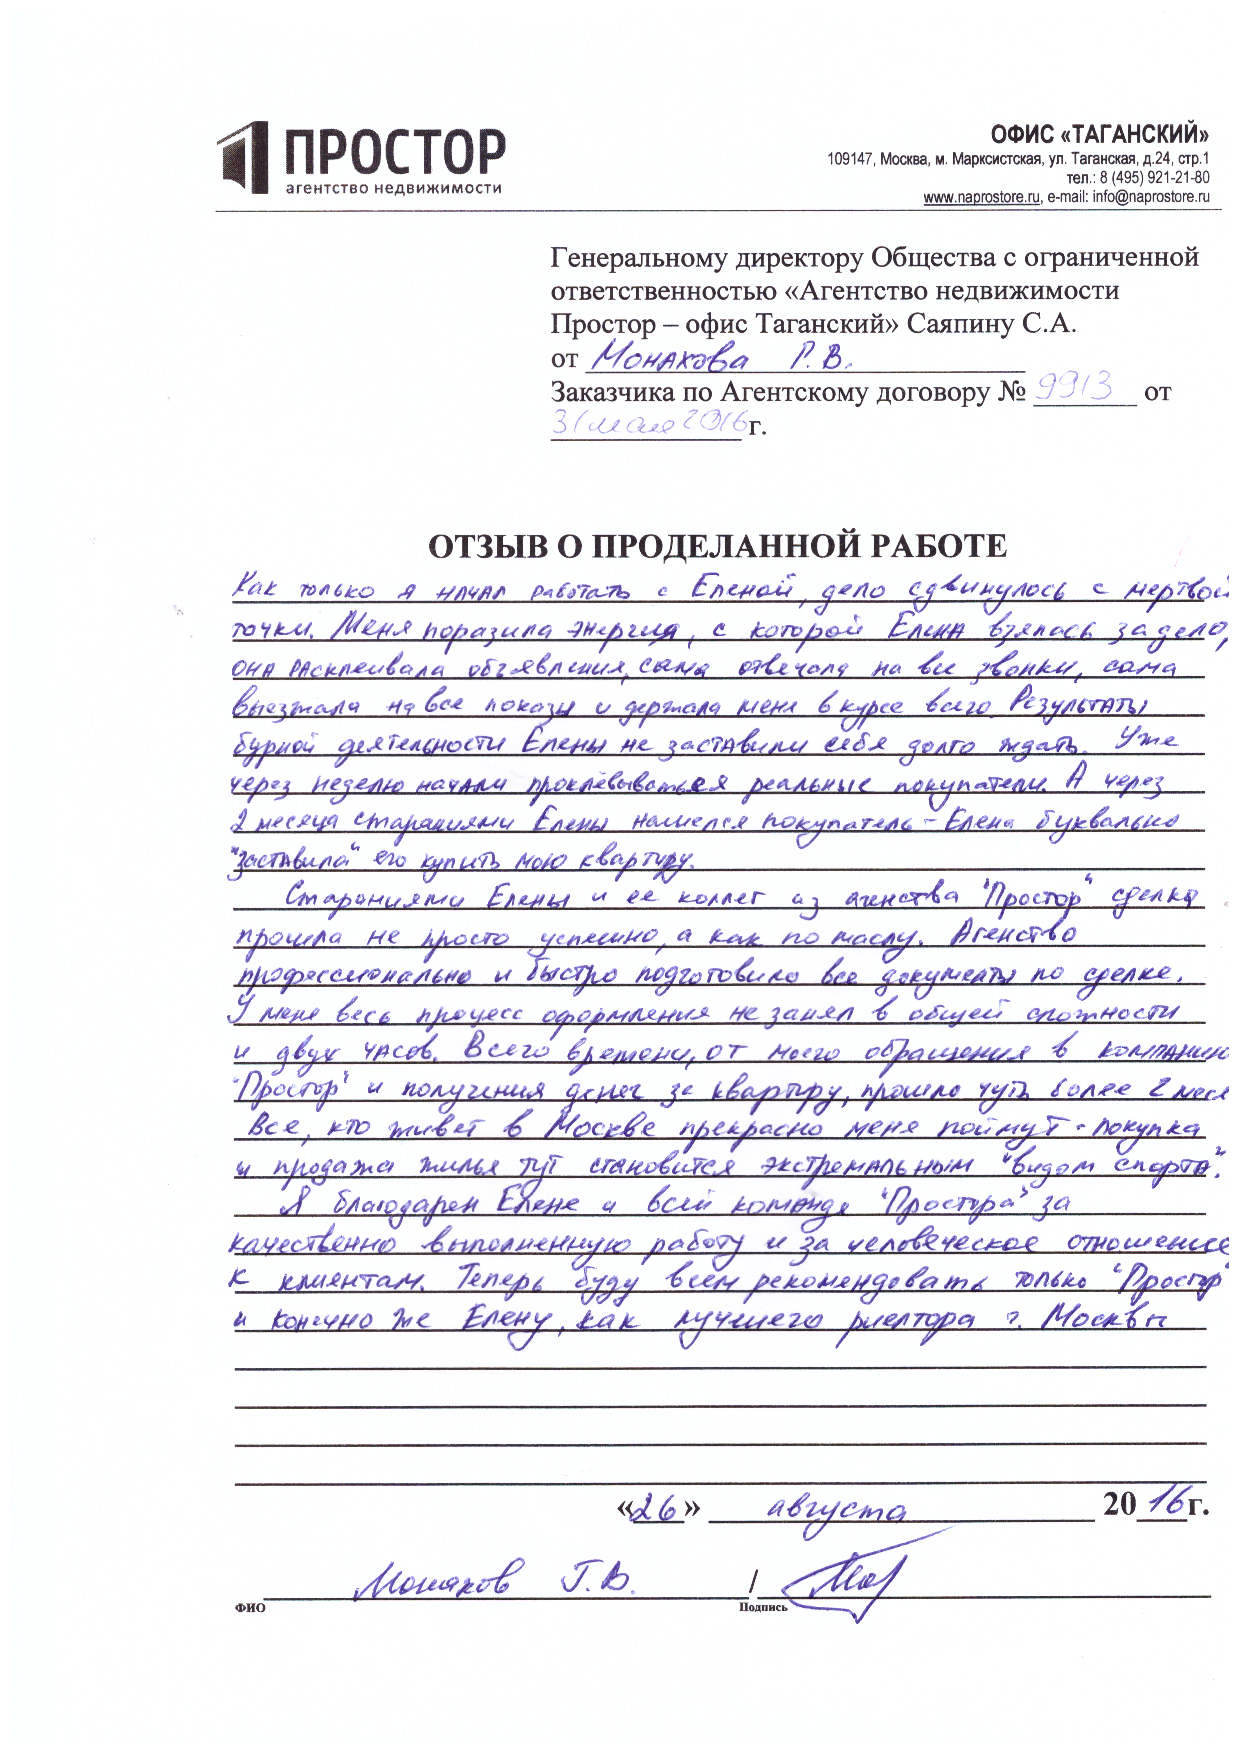 ПРОСТОР
агентство недвижимости
ОФИС «ТАГАНСКИЙ»
109147, Москва, м. Марксистская, ул. Таганская, д.24, стр.1
тел.: 8 (495) 921-21-80
www.naprostore.ru, e-mail: info@naprostore.ru
Генеральному директору Общества с ограниченной
ответственностью «Агентство недвижимости
Простор – офис Таганский» Саяпину С.А.
от Монахова Г.В.
Заказчика по Агентскому договору № 9913 от
31 мая 2016 г.
ОТЗЫВ О ПРОДЕЛАННОЙ РАБОТЕ
Как только я начал работать с Еленой, дело сдвинулось с мертвой
точки. Меня поразила энергия, с которой Елена взялась за дело,
она расклеивала объявления, сама отвечала на все звонки, сама
выезжала на все показы и держала меня в курсе всего. Результаты
бурной деятельности Елены не заставили себя долго ждать. Уже
через неделю начали проклёвываться реальные покупатели. А через
2 месяца стараниями Елены нашелся покупатель - Елена буквально
"заставила" его купить мою квартиру.
Стараниями Елены и ее коллег из агенства "Простор" сделка
прошла не просто успешно, а как по маслу. Агенство
профессионально и быстро подготовило все документы по сделке.
У меня весь процесс оформления не занял в общей сложности
и двух часов. Всего времени, от моего обращения в компанию
"Простор" и получения денег за квартиру, прошло чуть более 2 меся
Все, кто живет в Москве прекрасно меня поймут - покупка
и продажа жилья тут становится экстремальным "видом спорта".
Я благодарен Елене и всей команде "Простора" за
качественно выполненную работу и за человеческое отношение
к клиентам. Теперь буду всем рекомендовать только "Простор"
и конечно же Елену, как лучшего риелтора г. Москвы
«26» августа 2016г.
Монахов Г.В. /
ФИО Подпись